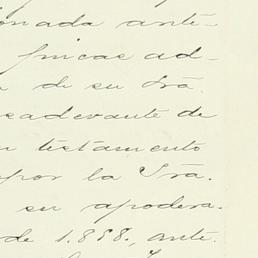 onada anté-
fincas ad-
a de su Sra.
sadevante de
n testamento
por la Sra.
su apodera-
de 1.898, anté-